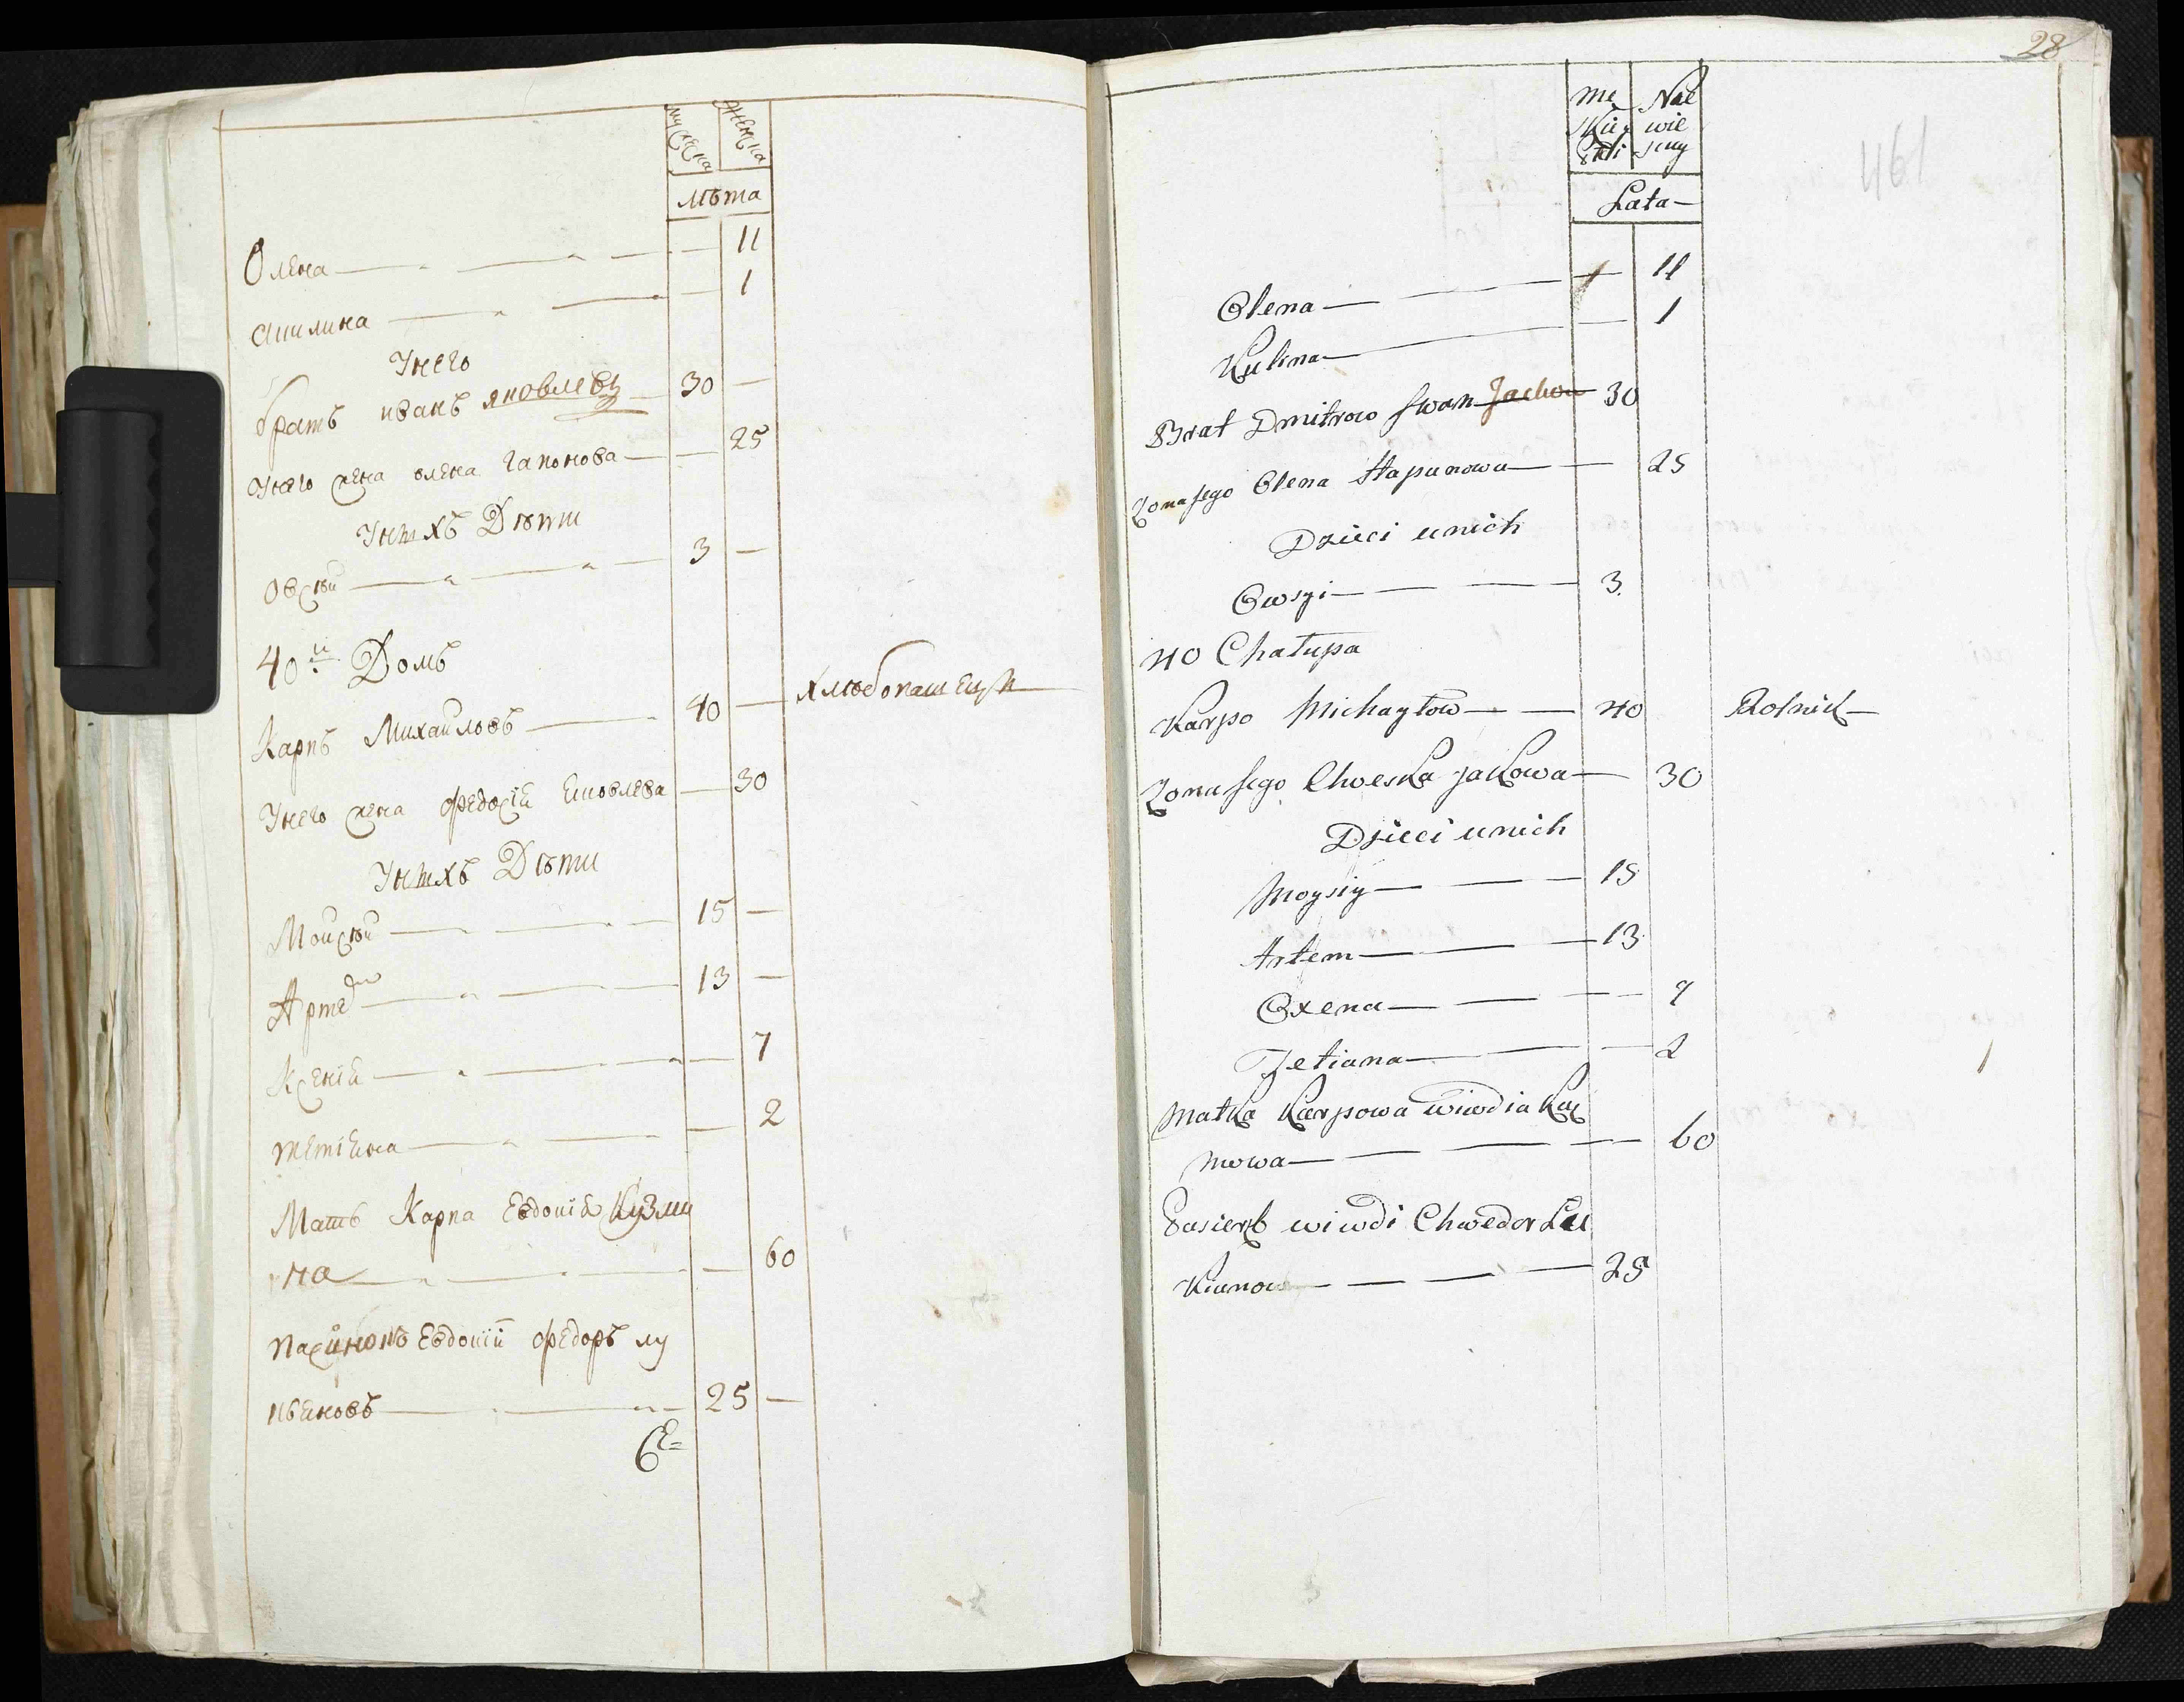 мужеска женска
лѣта
Олена 11
Акилина 1
У него
братъ иванъ яковлевъ 30
У него жена олена гапонова 25
У нихъ Дѣти
Овсѣй 3
40й Домъ
Карпъ Михайловъ 40 хлюбопашецъ
У него жена федосія яковлева 30
У нихъ Дѣти
Мойсѣй 15
Артемъ 13
Ксенія 7
тетіяна 2
Мать Карпа Евдокія Кузми
на 60
пасинокъ Евдокіи федоръ лу
кьяновъ 25
28
461
Lata
Olena 11
Kulina 1
Brat Dmitrow Iwan Jackow 30
Zona jego Olena Hapunowa 25
Dzieci u nich
Owsyi 3
40 Chałupa
Karpo Michayłow 40 Rolnik
Zona jego Chweska jakowa 30
Dzieci u nich
Moysiy 15
Artem 13
Oxena 7
Tetiana 2
Matka Karpowa wiwdia Kuz
mowa 60
Pasierb wiwdi Chwedor Lu
kianow 25